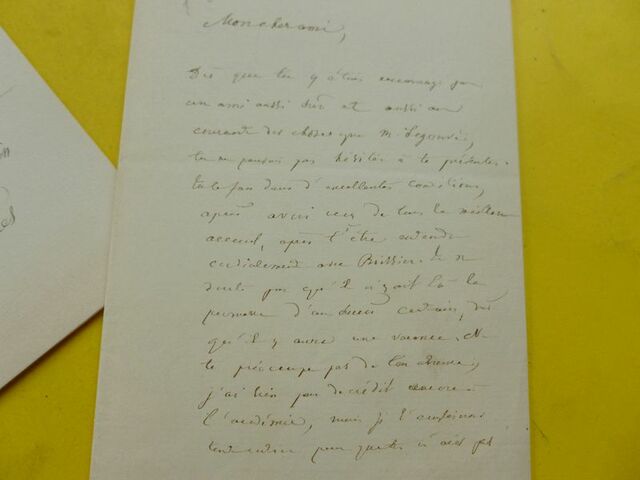 Mon cher ami,
Dès que tu y étais encouragé par
un ami aussi sûr et aussi au
courant des choses que M. Legouvé,
tu ne pouvais pas hésiter à te présenter.
tu le fais dans d'excellentes conditions,
après avoir reçu de tous le meilleur
accueil, après t'être entendu
cordialement avec Brissier. Je ne
doute pas qu'il n'y ait là la
promesse d'un succès certain, dès
qu'il y aura une vacance. Ne
te préoccupe pas de
j'ai bien peu de crédit encore à
l'académie, mais je l'emploierai
tout entier pour